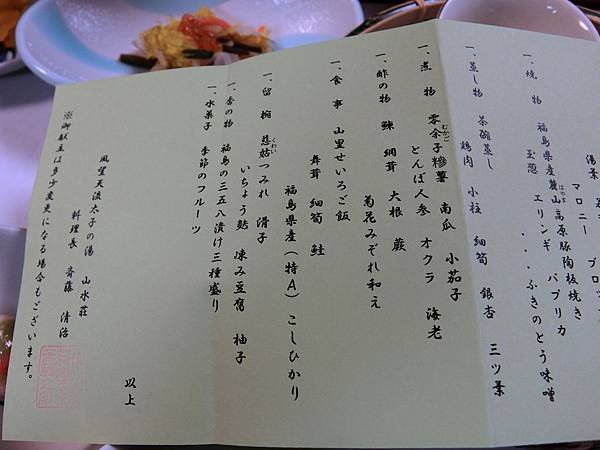 湯葉
マロニー　ブロッ
一、焼　物　福島県産麓山高原豚陶板焼き
はやま
玉葱　エリンギ　パプリカ
・・・ふきのとう味噌
一、蒸し物　茶碗蒸し
鶏肉　小柱　細筍　銀杏　三ツ葉
一、煮　物　零余子糝薯　南瓜　小茄子
むかご
とんぼ人参　オクラ　海老
一、酢の物　鰊　網茸　大根　蕨
菊花みぞれ和え
一、食　事　山里せいろご飯
舞茸　細筍　鮭
福島県産（特Ａ）こしひかり
一、留　椀　慈姑つみれ　滑子
くわい
いちょう麩　凍み豆腐　柚子
一、香の物　福島の三五八漬け三種盛り
一、水菓子　季節のフルーツ
以上
風望天流太子の湯　山水荘
料理長　斉藤　清治
※御献立は多少変更になる場合もございます。